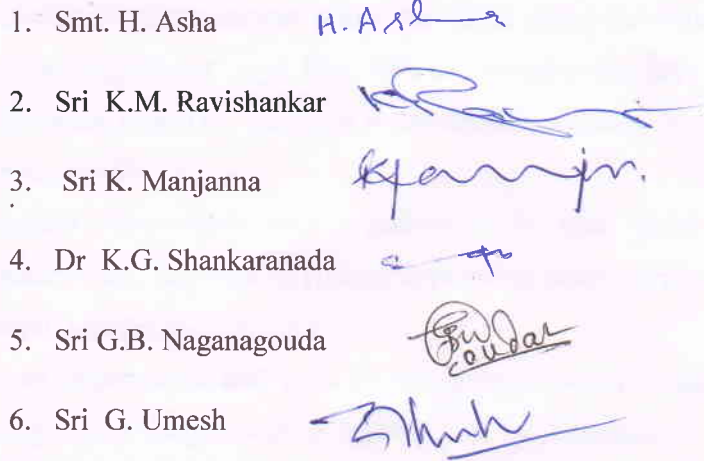 1. Smt. H. Asha H. Asha
2. Sri K.M. Ravishankar
3. Sri K. Manjanna
4. Dr K.G. Shankaranada
5. Sri G.B. Naganagouda
6. Sri G. Umesh